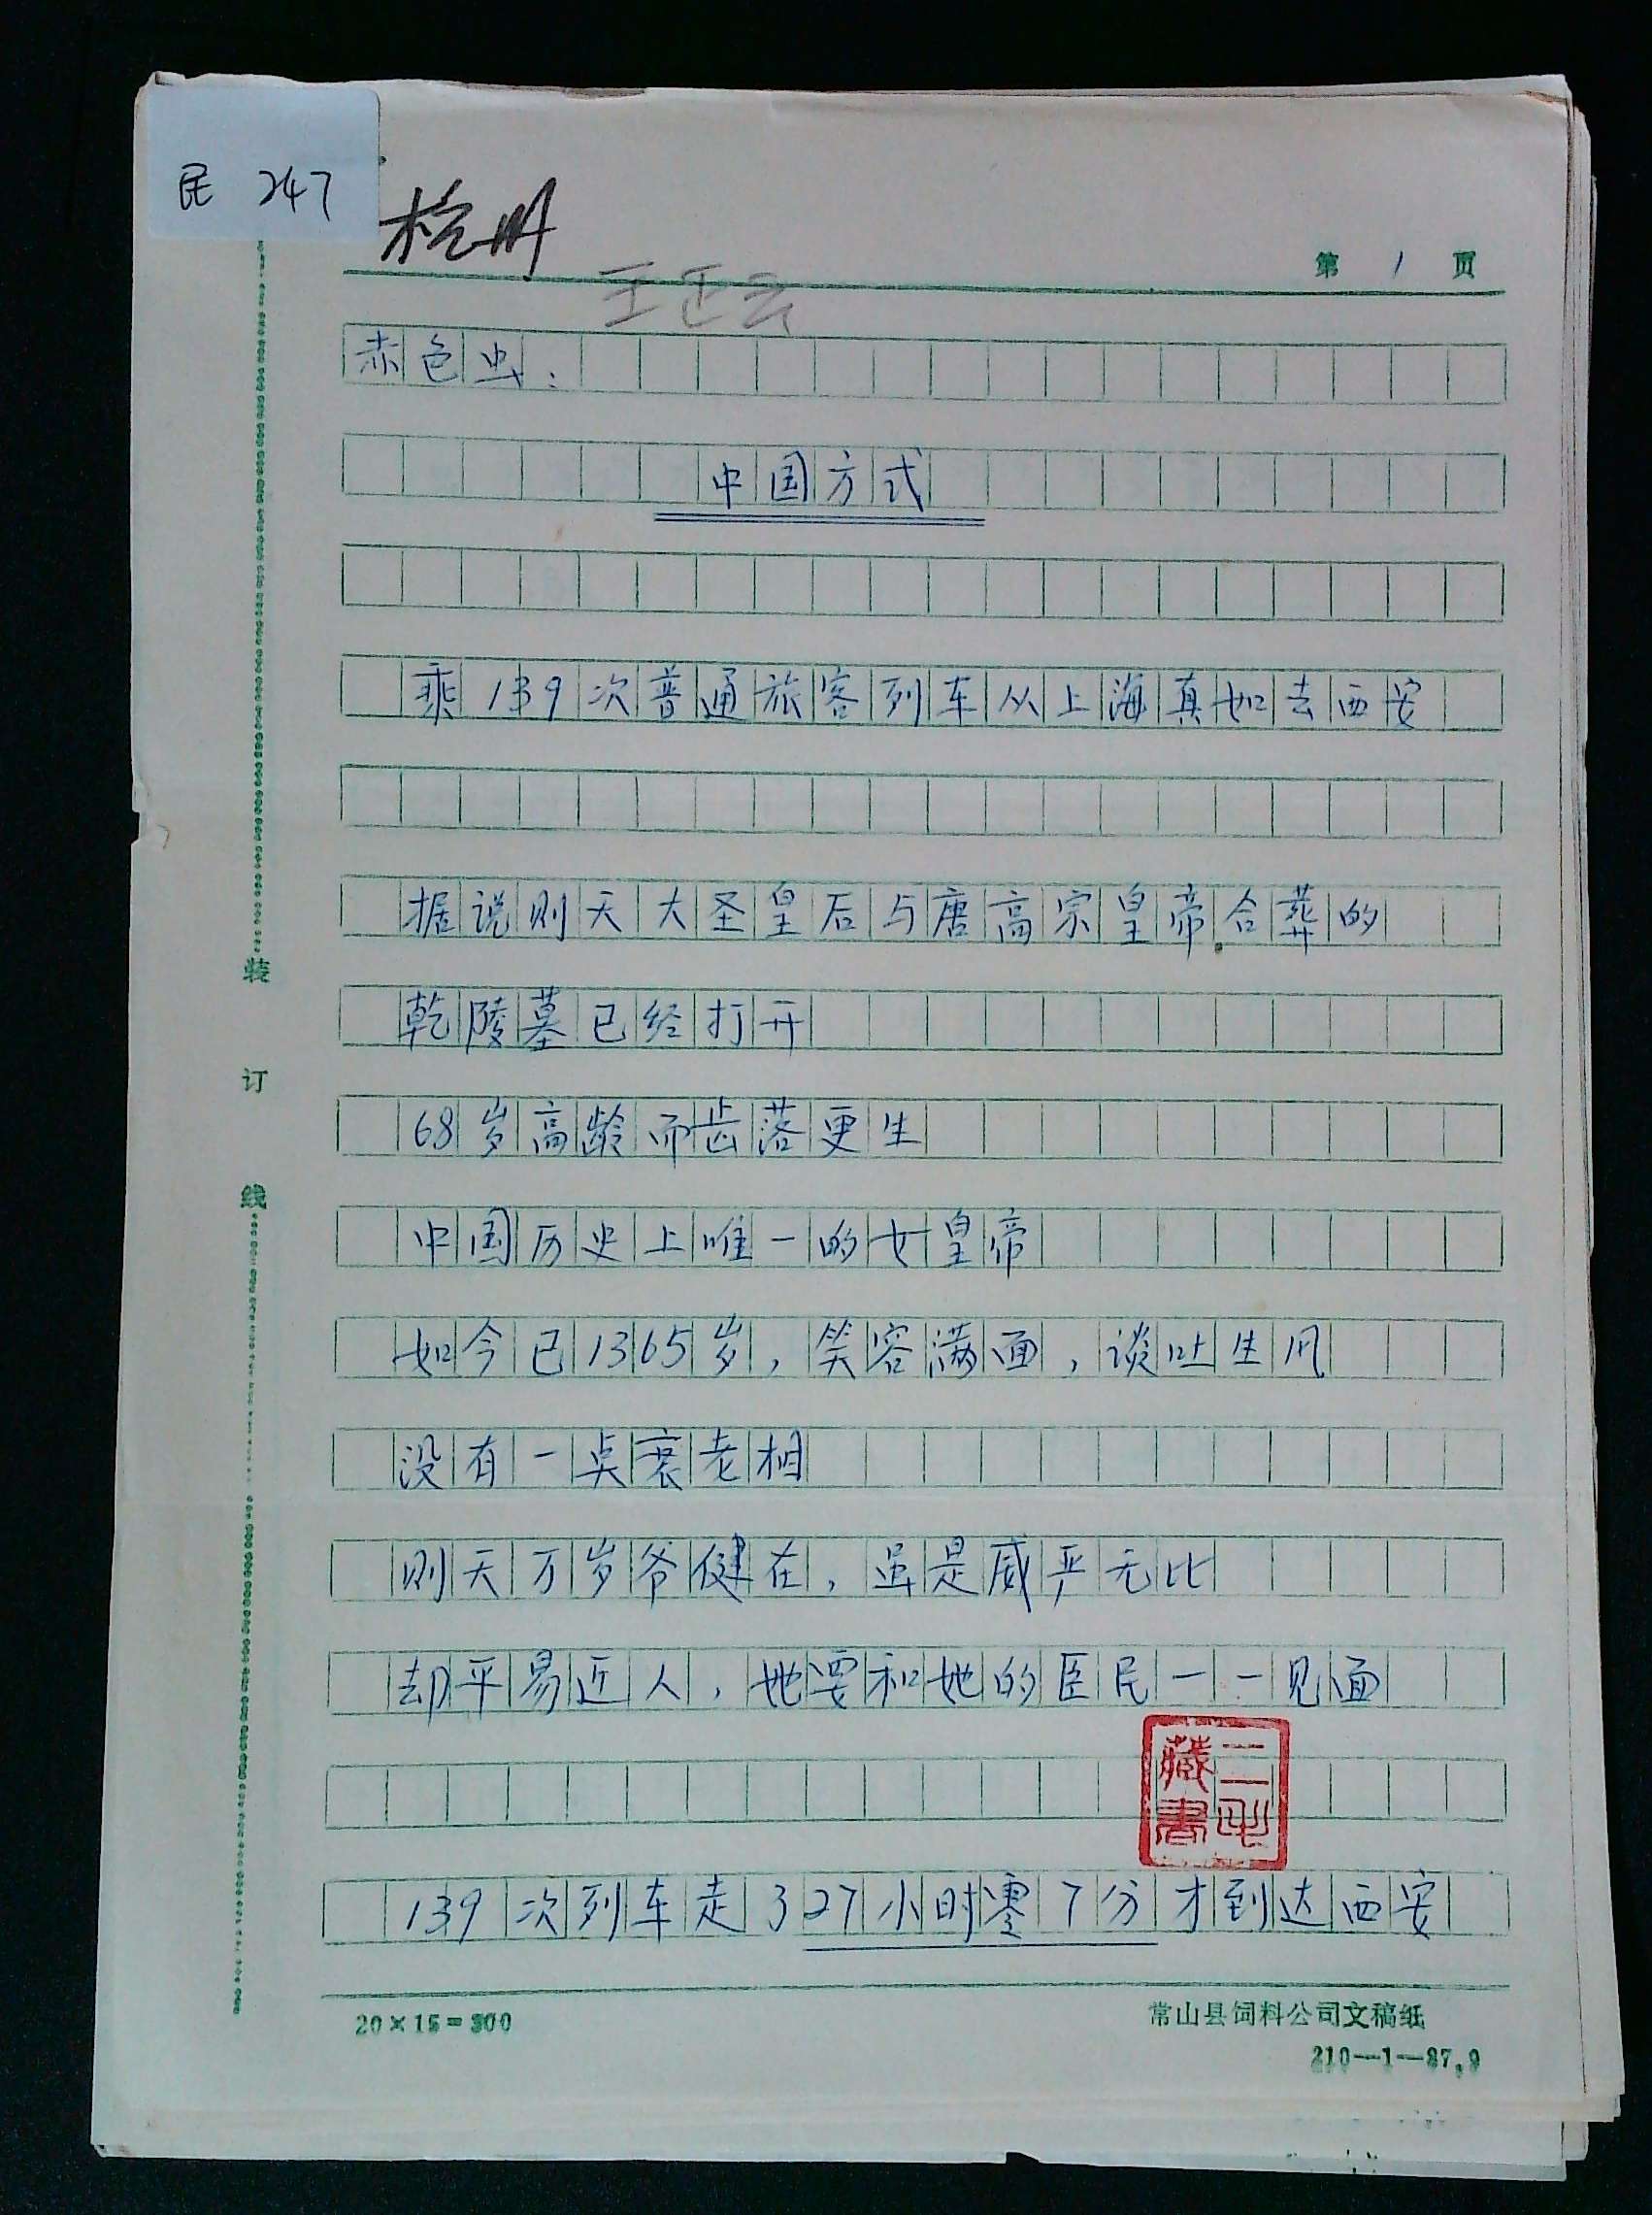 民 247
杭州
第 1 页
王正云
赤色虫:
中国方式
乘139次普通旅客列车从上海真如去西安
据说则天大圣皇后与唐高宗皇帝合葬的
乾陵墓已经打开
68岁高龄而齿落更生
中国历史上唯一的女皇帝
如今已1365岁,笑容满面,谈吐生风
没有一点衰老相
则天万岁爷健在,虽是威严无比
却平易近人,她要和她的臣民一一见面
139次列车走327小时零7分才到达西安
装
订
线
藏书
20×15=300
常山县饲料公司文稿纸
210—1—87.9